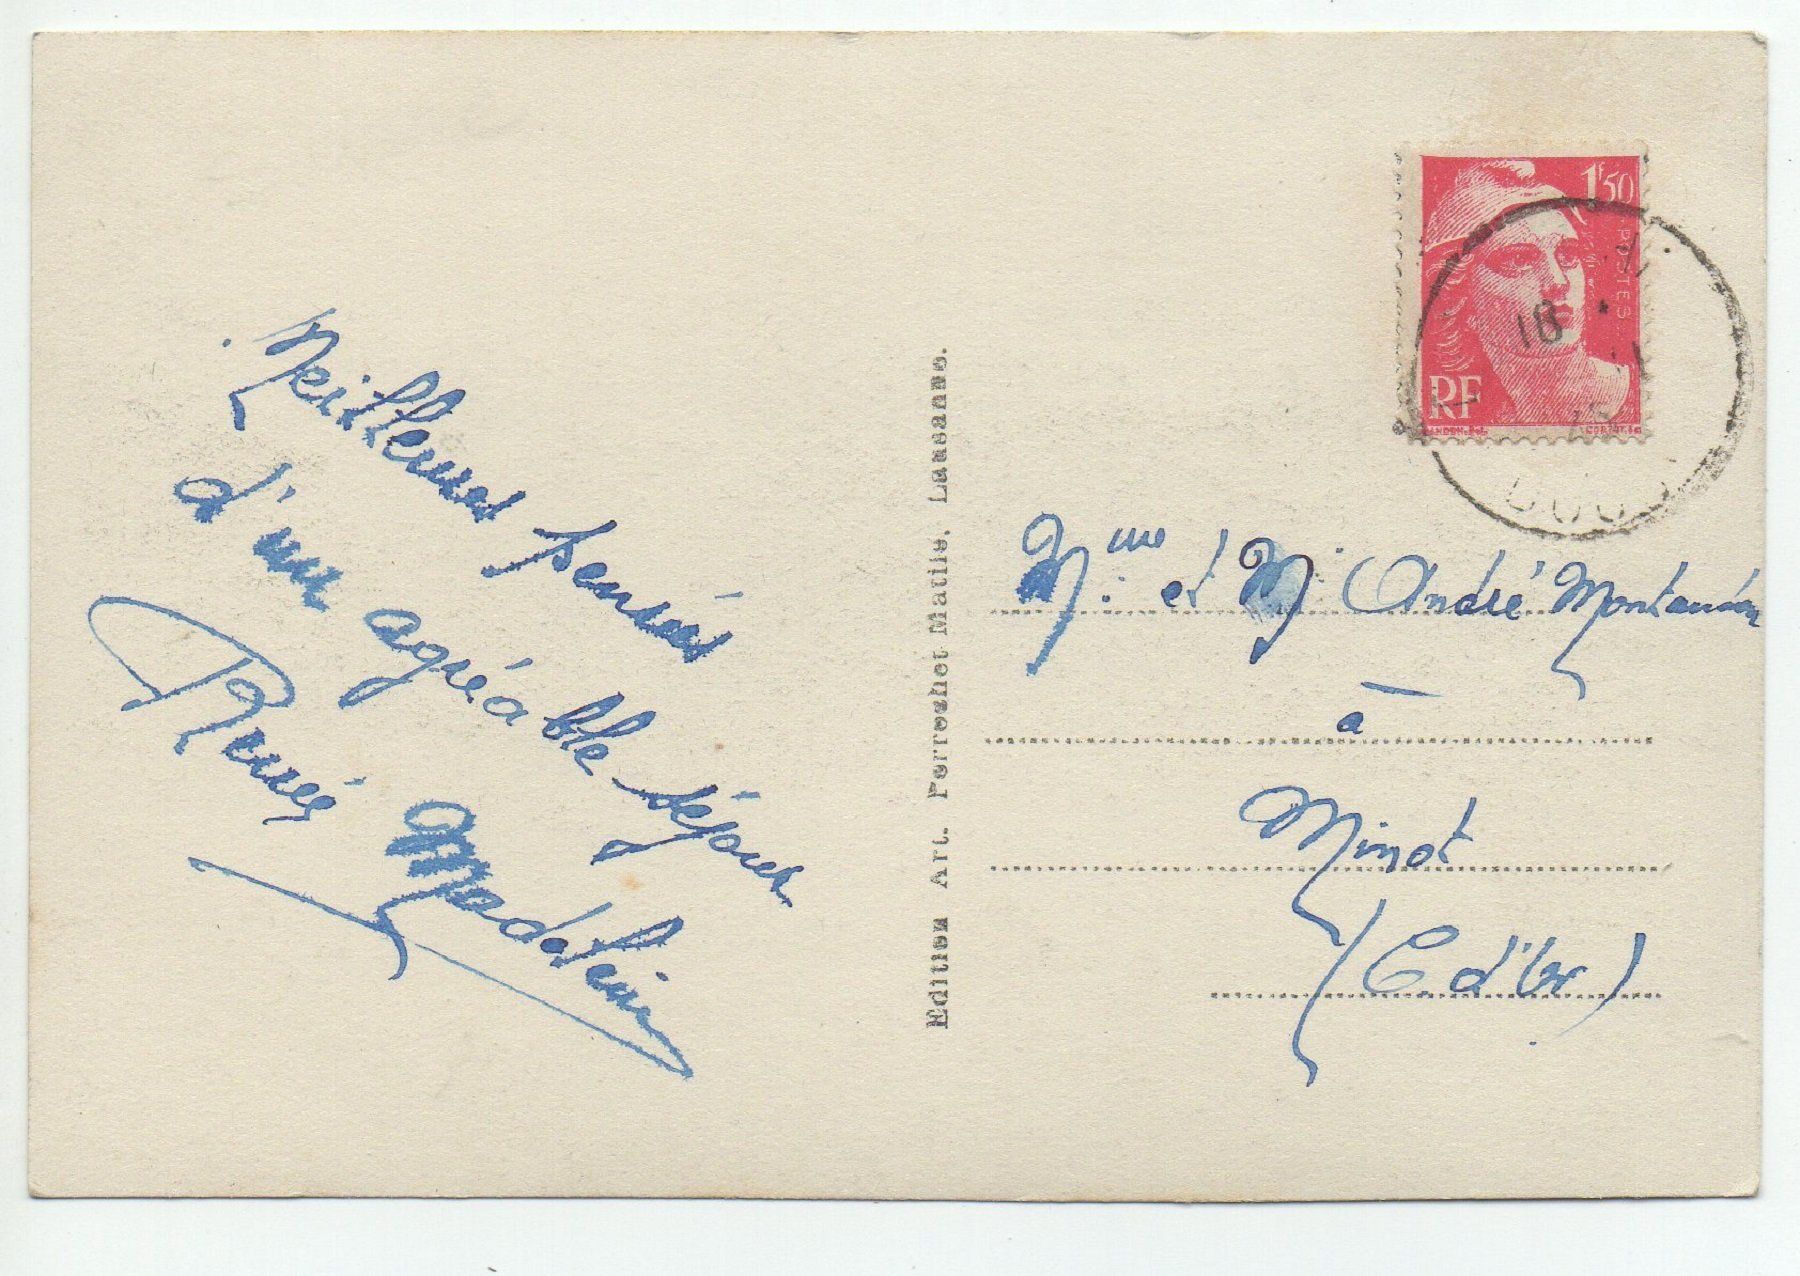 Meilleures pensées
d'un agréable séjour
Renée Madeleine
Edition Art. Perrochet Matile, Lausanne.
1F50
POSTES
RF
18
Mme et M. André
à
Minot
(C. d'Or)